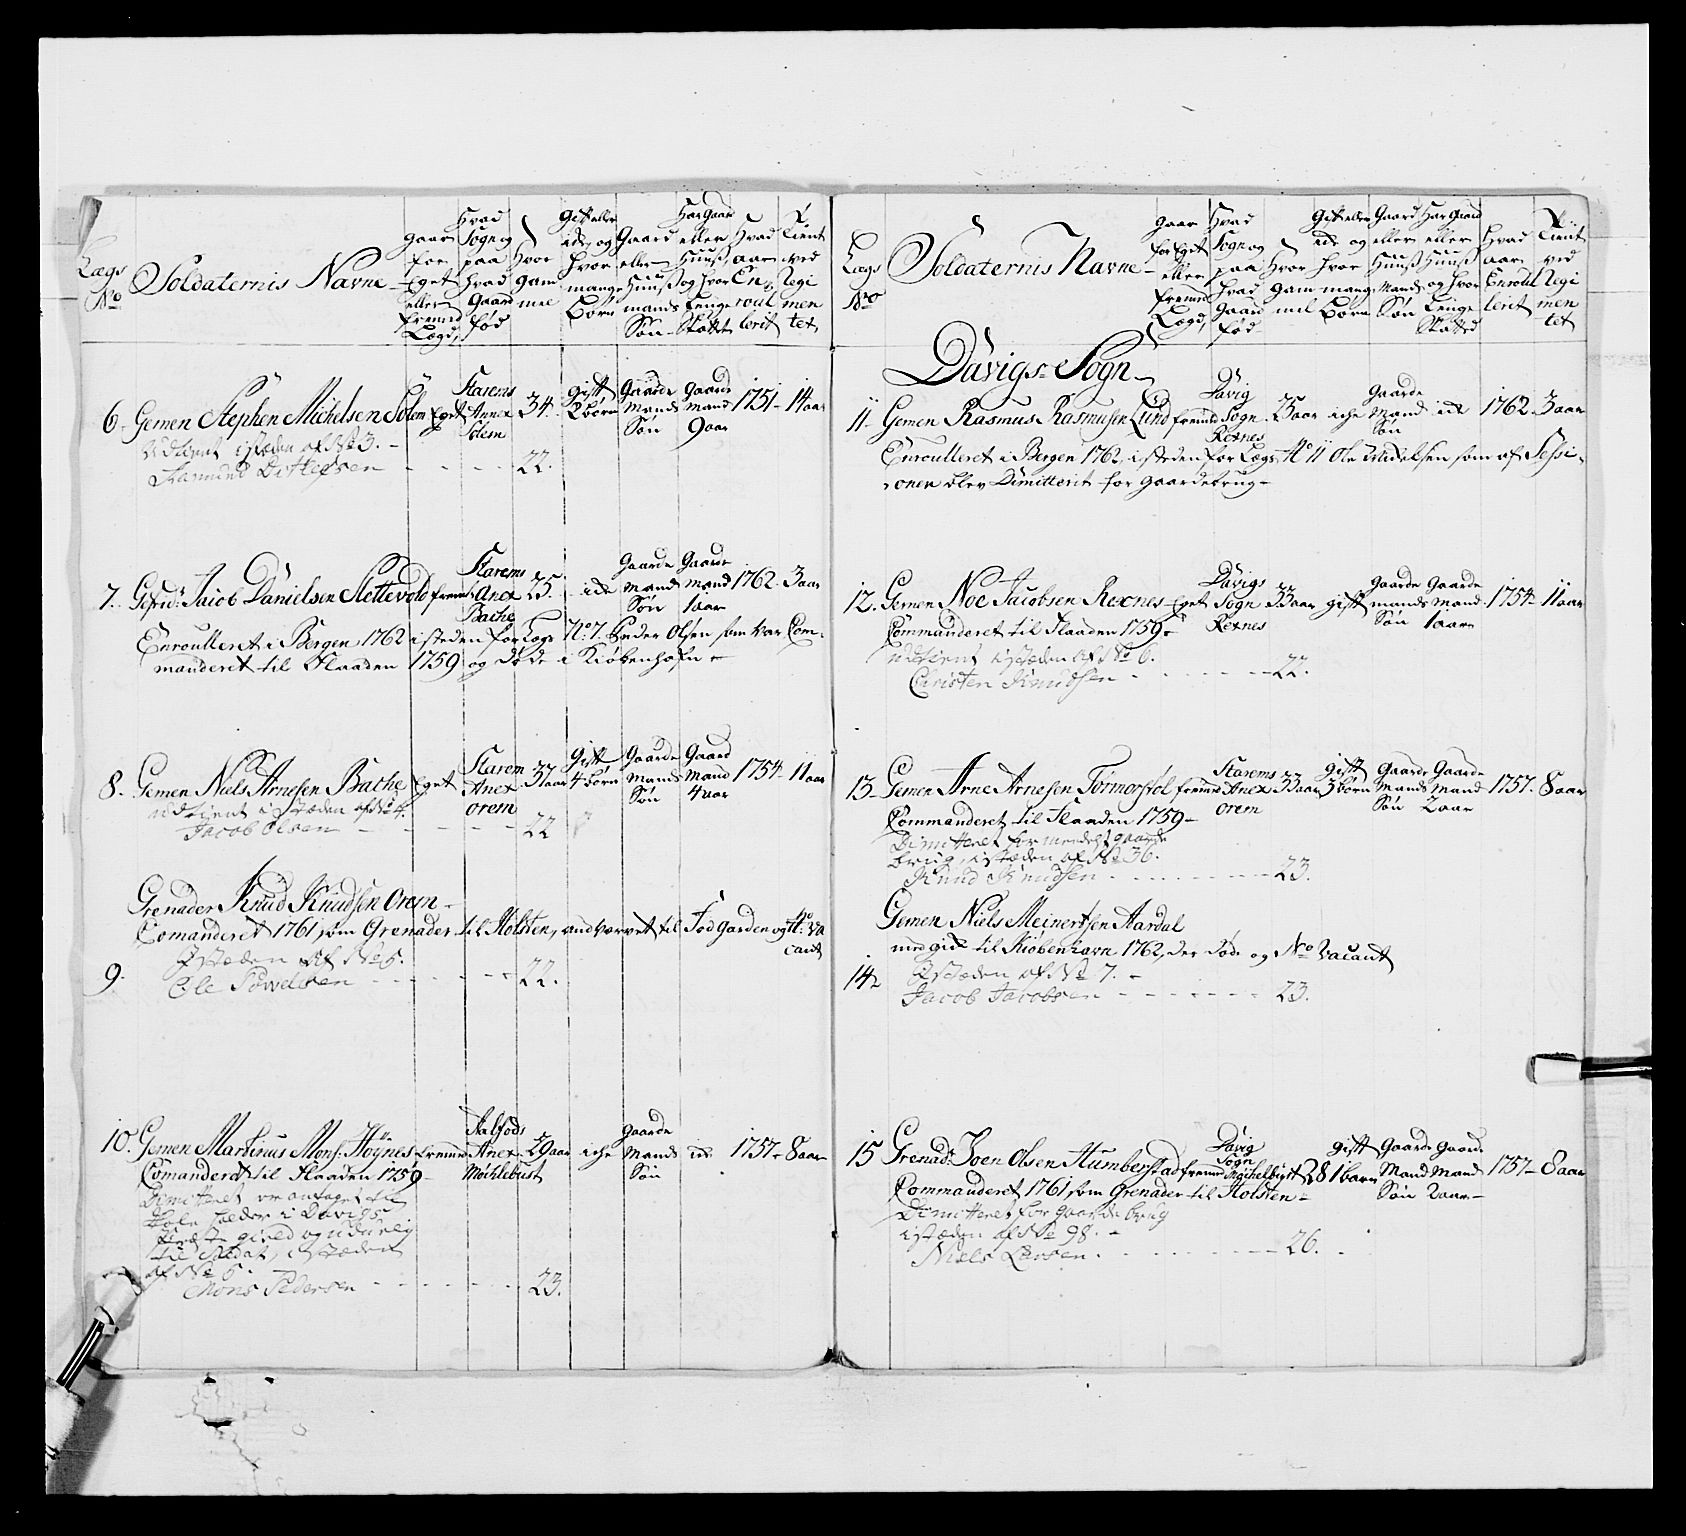 Lægs No
Soldaternis Navne
gaar for Eget eller fremed Lægd,
Hvad Sogn og paa hvad Gaard fød
hvor gam mel
Gift eller ide, og hvor mange Børn
Gaard eller Huuß mands Søn
Har gaard eller Huuß og hvor Lenge Skattet
Hvad aar En, roul lerit
Tient ved Regi men tet
6 Gemen Stephen Michelsen Solem Eget Starems Annex Solem 34. gift 2 børn Gaarde Mands Søn Gaarde mand 9 aar 1751 - 14 aar
Udtient i stæden af No 3. -
Rasmus Dethefsen - - - - 22.
7. Gefrid: Jacob Danielsen Slettevold fremd Starems Anex Bache 25. - ide Gaarde mands Søn Gaarde mand 1 aar 1762. 3 aar
Enroulleret i Bergen 1762 i steden for Lægs No: 7. Peder Olsen som var Com-
manderet til Flaaden 1759 og døde i Kiøbenhafn -
8. Gemen Niels Arnesen Bache Eget Starem Anex orem 37 aar gift 4 børn Gaarde Mands Søn Gaard Mand 4 aar 1754 - 11 aar
udtient i stæden af No 4.
Jacob Olsen - - - - 22
Grenader Knud Knudsen Orem -
Comanderet 1761 som Grenader til Holsten, andvorvet til Fod Garden og No: Va
cant
I stæden af No 5.
9. Ole Powelsen - - - - 22.
10. Gemen Martinus Mons: Høynes fremmed Aalfods Anex Møchlebust 29 aar iche Gaarde Mands Søn ide 1757 - 8 aar
Comanderet til Flaaden 1759 -
Dimitteret og antaget til
holder i Davigs
gield og udurlig
til Soldat, i stæden
af No 5. -
Mons Pedersen - - - - 23.
Lægs No
Soldaternis Navne -
gaar for Eget eller fremed Lægd,
Hvad Sogn og paa hvad Gaard fød
Hvor gam mel
Gift eller ide og hvor mange Børn
Gaard eller Huuß Mands Søn
Har Gaard eller Huuß og hvor Lenge Skatted
Hvad aar Enroul lerit
Tient ved Regi men tet
Davigs Sogn
11. Gemen Rasmus Rasmusen Lund fremd Davig Sogn Rexnes 25 aar iche Gaarde Mand Søn ide 1762. 3 aar
Enroulleret i Bergen 1762, i steden for Lægs No 11 Ole som af Sessi-
onen blev Dimitterit for gaardebrug -
12. Gemen Noe Jacobsen Rexnes Eget Davigs Sogn Rexnes 33 aar gift gaarde mands Søn Gaarde Mand 1 aar 1754 - 11 aar
Commanderet til Flaaden 1759 -
udtient i stæden af No 6.
Christen Knudsen - - - - 22.
13. Gemen Arne Arnesen Tørmorsøl fremd Starems Anex orem 33 aar gift 3 børn Gaarde Mands Søn Gaarde Mand 2 aar 1757. 8 aar
Commanderet til Flaaden 1759 -
Dimitteret formedelst gaarde
brug, i stæden af No 36.
Knud Knudsen - - - - 23.
Gemen Niels Meinertsen Aardal
med gik til Kiøbenhavn 1762, der døde og No Vacant
I stæden af No 7. -
14. Jacob Jacobsen - - - - 23.
15 Grenad: Joen Olsen Humberstad fremd Davig Sogn Møchelbust 28 gift 1 barn Gaarde Mand Søn Gaarde Mand 2 aar - 1757 - 8 aar
Commanderet 1761 som Grenader til Holsten -
Dimitteret for gaarde brug
i stæden af No 98. -
Niels Larsen - - - - 26.